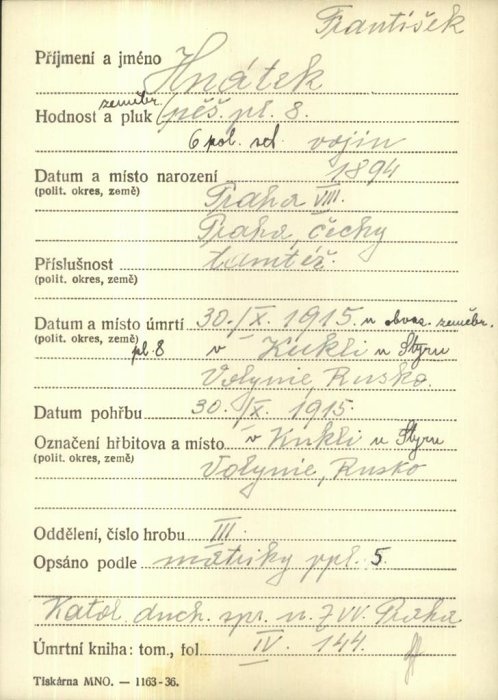 František
Příjmení a jméno Hnátek
zeměbr.
Hodnost a pluk pěš. pl. 8.
6 pol. set. vojín
Datum a místo narození 1894
(polit. okres, země) Praha VIII.
Praha, Čechy
Příslušnost tamtéž.
(polit. okres, země)
Datum a místo úmrtí 30./X. 1915. u obvaz. zeměbr.
(polit. okres, země) pl. 8 v Kukli u Styru
Volynie, Rusko
Datum pohřbu 30./X. 1915.
Označení hřbitova a místo v Kukli u Styru
(polit. okres, země) Volynie, Rusko
Oddělení, číslo hrobu III
Opsáno podle matriky ppl. 5.
Katol. duch. spr. u ZVV. Praha
Úmrtní kniha: tom., fol. IV. 144.
Tiskárna MNO. — 1163-36.